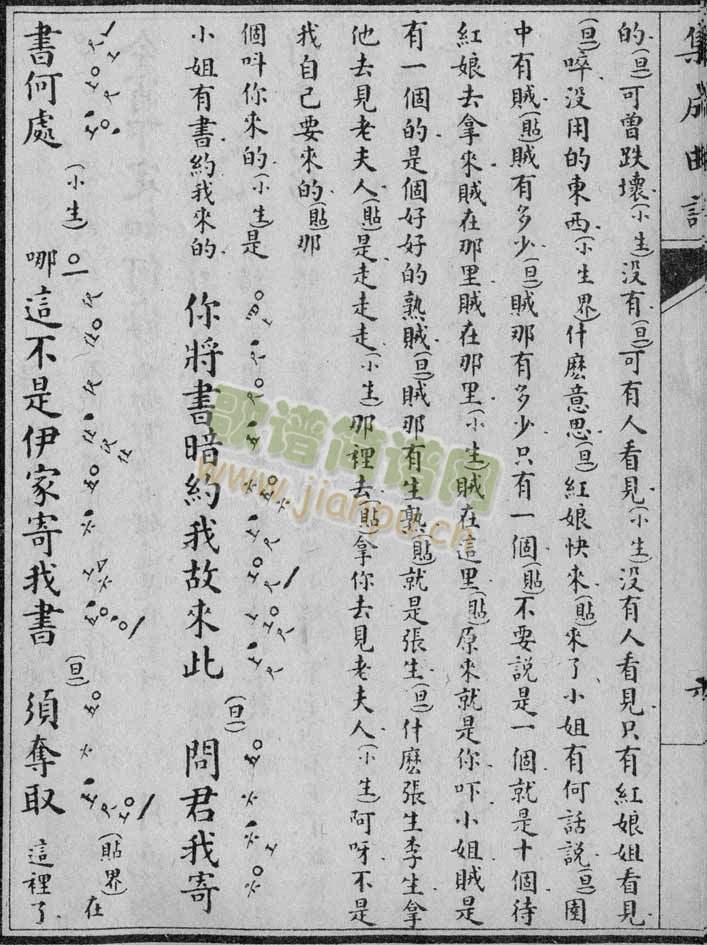 集成曲譜
的(旦)可曾跌壞(小生)没有(旦)可有人看見(小生)没有人看見只有紅娘姐看見
(旦)啐没用的東西(小生界)什麽意思(旦)紅娘快來(貼)來了小姐有何話說(旦)園
中有賊(貼)賊有多少(旦)賊那有多少只有一個(貼)不要說是一個就是十個待
紅娘去拿來賊在那里賊在那里(小生)賊在這里(貼)原來就是你吓小姐賊是
有一個的是個好好的熟賊(旦)賊那有生熟(貼)就是張生(旦)什麽張生李生拿
他去見老夫人(貼)是走走走(小生)那裡去(貼)拿你去見老夫人(小生)阿呀不是
我自己要來的(貼)那
個呌你來的(小生)是
小姐有書約我來的 你將書暗約我故來此(旦)問君我寄
書何處(小生)哪這不是伊家寄我書(旦)須奪取(貼界)在
這裡了
歌谱简谱网
www.jianpu.cn